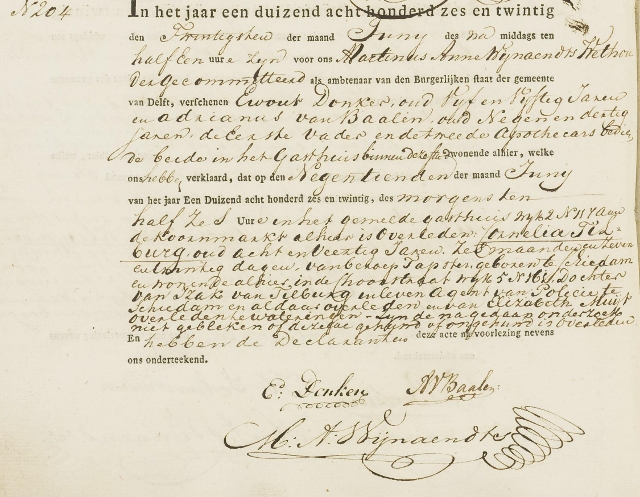 N 204
In het jaar een duizend acht honderd zes en twintig
den Twintigsten der maand Juny des na middags ten
half Een uure zyn voor ons Martinus Anne Wijnaendts Wethou
der gecommitteerd als ambtenaar van den Burgerlijken staat der gemeente
van Delft, verschenen Ewout Donker, oud Vyf en Vyftig Jaren
en adrianus van Baalen, oud Negen en dertig
Jaren, de Eerste Vader en de tweede Apothecars bediende
De beide in het Gasthuis binnen deze stad wonende alhier, welke
ons hebben verklaard, dat op den Negentienden der maand Juny
van het jaar Een Duizend acht honderd zes en twintig, des morgens ten
half Zes Uure in het gemelde gasthuis wyk 2 N 117 aan
de Koornmarkt alhier is Overleden: Cornelia Til
burg, oud acht en Veertig Jaren Zes maanden en Zeven
en twintig dagen, van beroep Tapster, geboren te Schiedam
en wonende alhier, in de Choorstraat wyk 5 N 161, Dochter
van Izak van Tilburg in leven Agent van Policie te
Schiedam en aldaar overleden en van Elizabeth
overleden te Wateringen - Zynde na gedaan onderzoek
niet gebleken of dezelve gehuwd of ongehuwd is overleden
En hebben de Declaranten deze acte na voorlezing nevens
ons onderteekend.
E: Donker AVBaalen
M: A: Wijnaendts